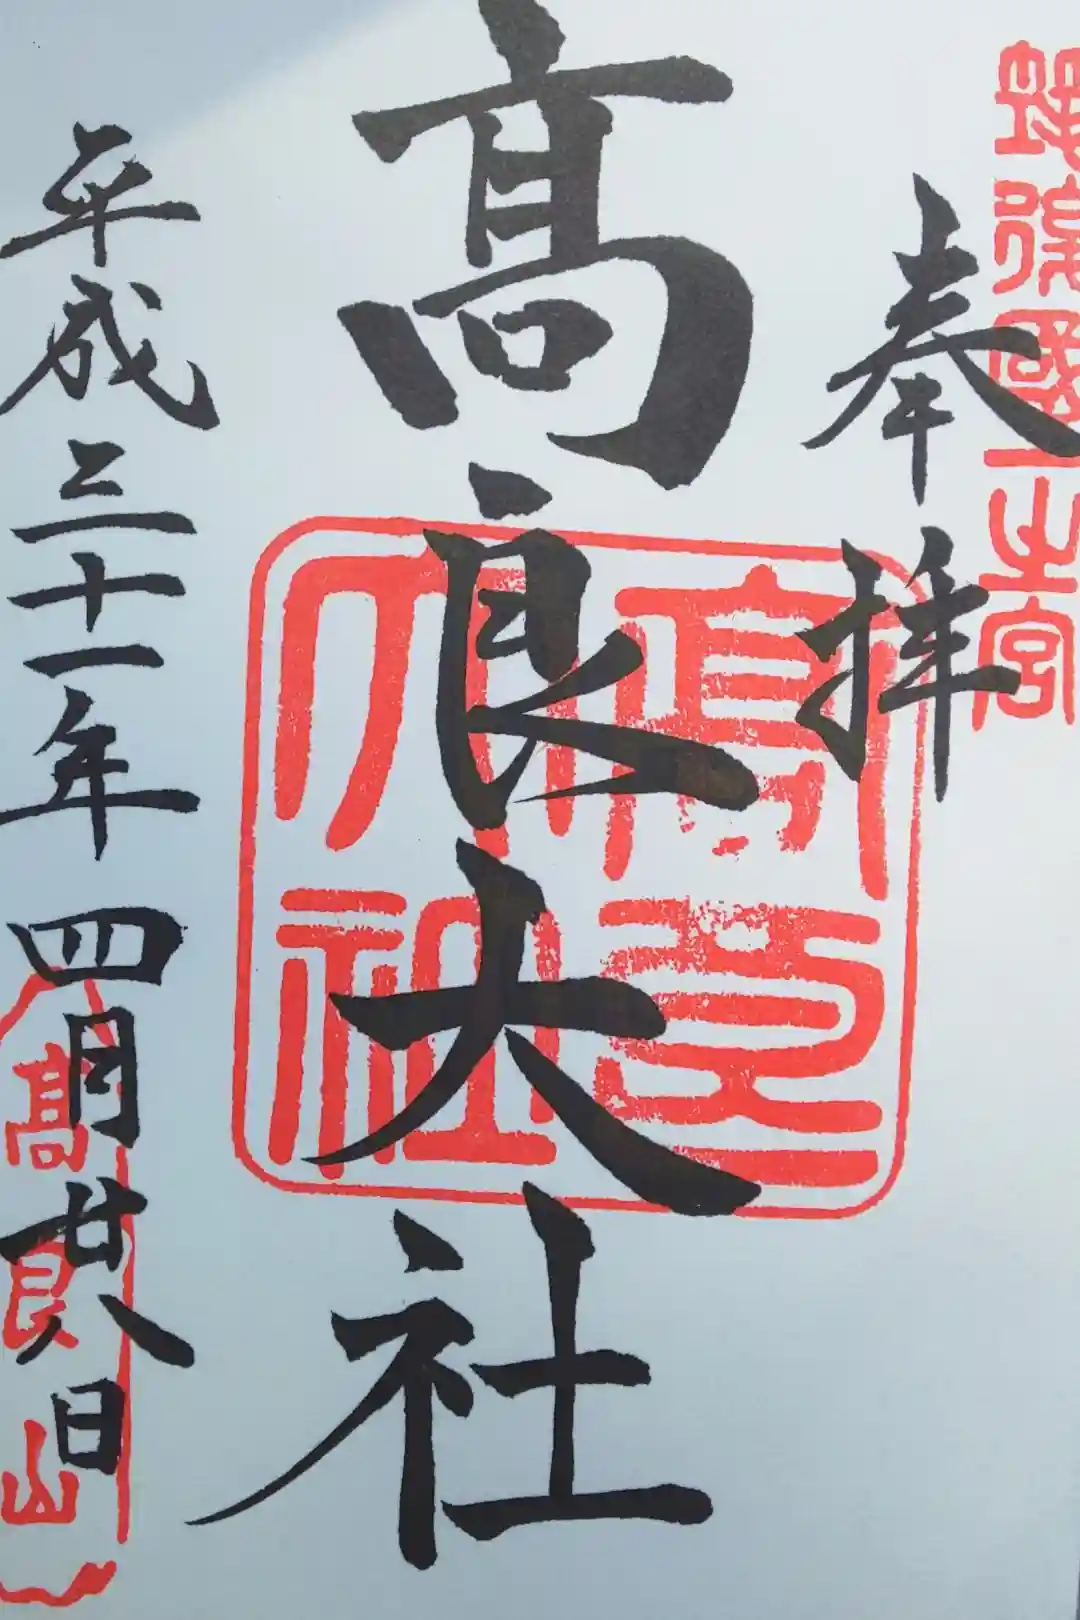 筑後國一之宮
奉拝
髙良大社
高良大社
平成三十一年四月廿八日
髙良山